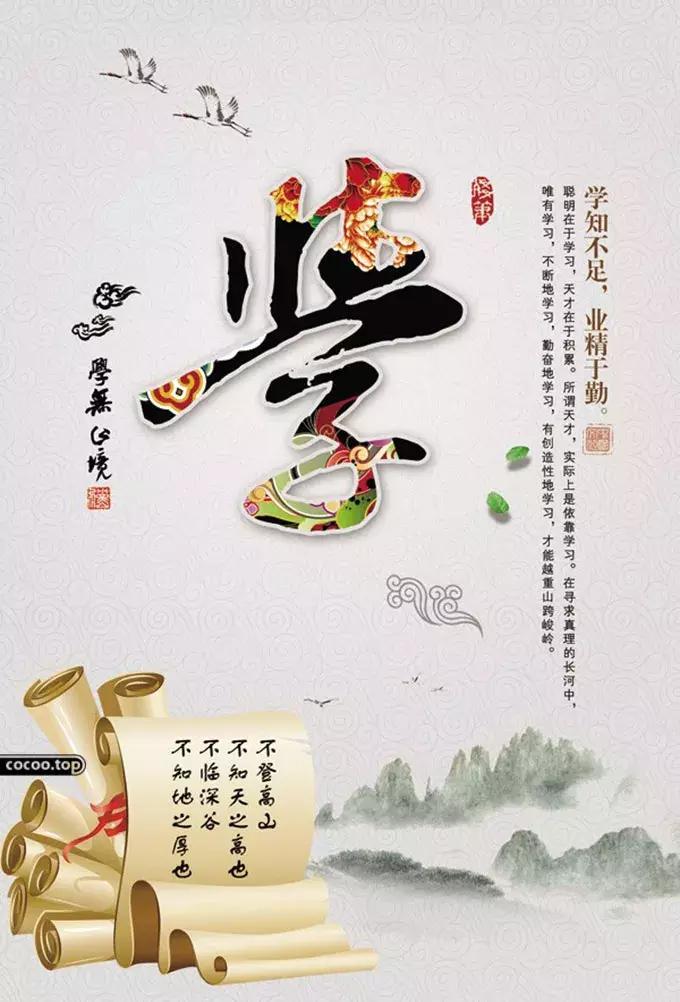 学
学知不足，业精于勤。
聪明在于学习，天才在于积累。所谓天才，实际上是依靠学习。在寻求真理的长河中，
唯有学习，不断地学习，勤奋地学习，有创造性地学习，才能越重山跨峻岭。
學無止境
不登高山
不知天之高也
不临深谷
不知地之厚也
cocoo.top